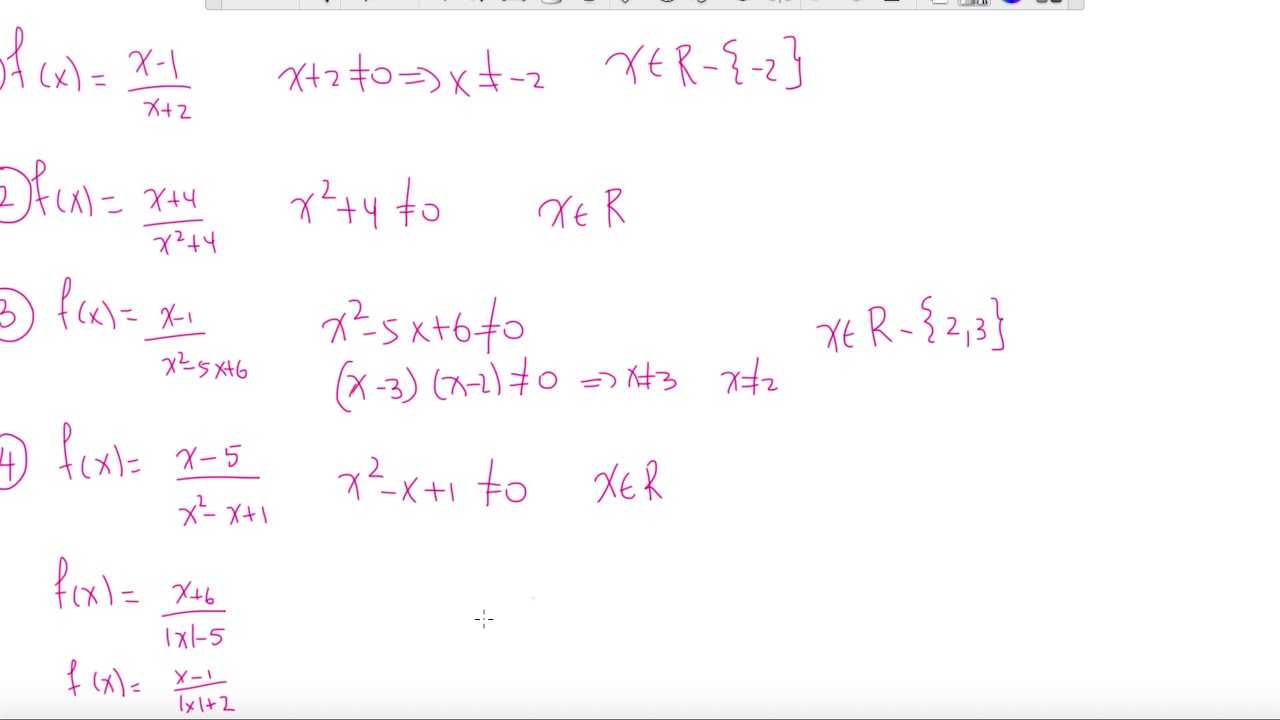 ) f(x) = x-1 / x+2    x+2≠0 ⇒ x≠-2    x∈R-{-2}
② f(x) = x+4 / x²+4    x²+4≠0    x∈R
③ f(x) = x-1 / x²-5x+6    x²-5x+6≠0    x∈R-{2,3}
(x-3)(x-2)≠0 ⇒ x≠3    x≠2
④ f(x) = x-5 / x²-x+1    x²-x+1≠0    x∈R
f(x) = x+6 / |x|-5
f(x) = x-1 / |x|+2